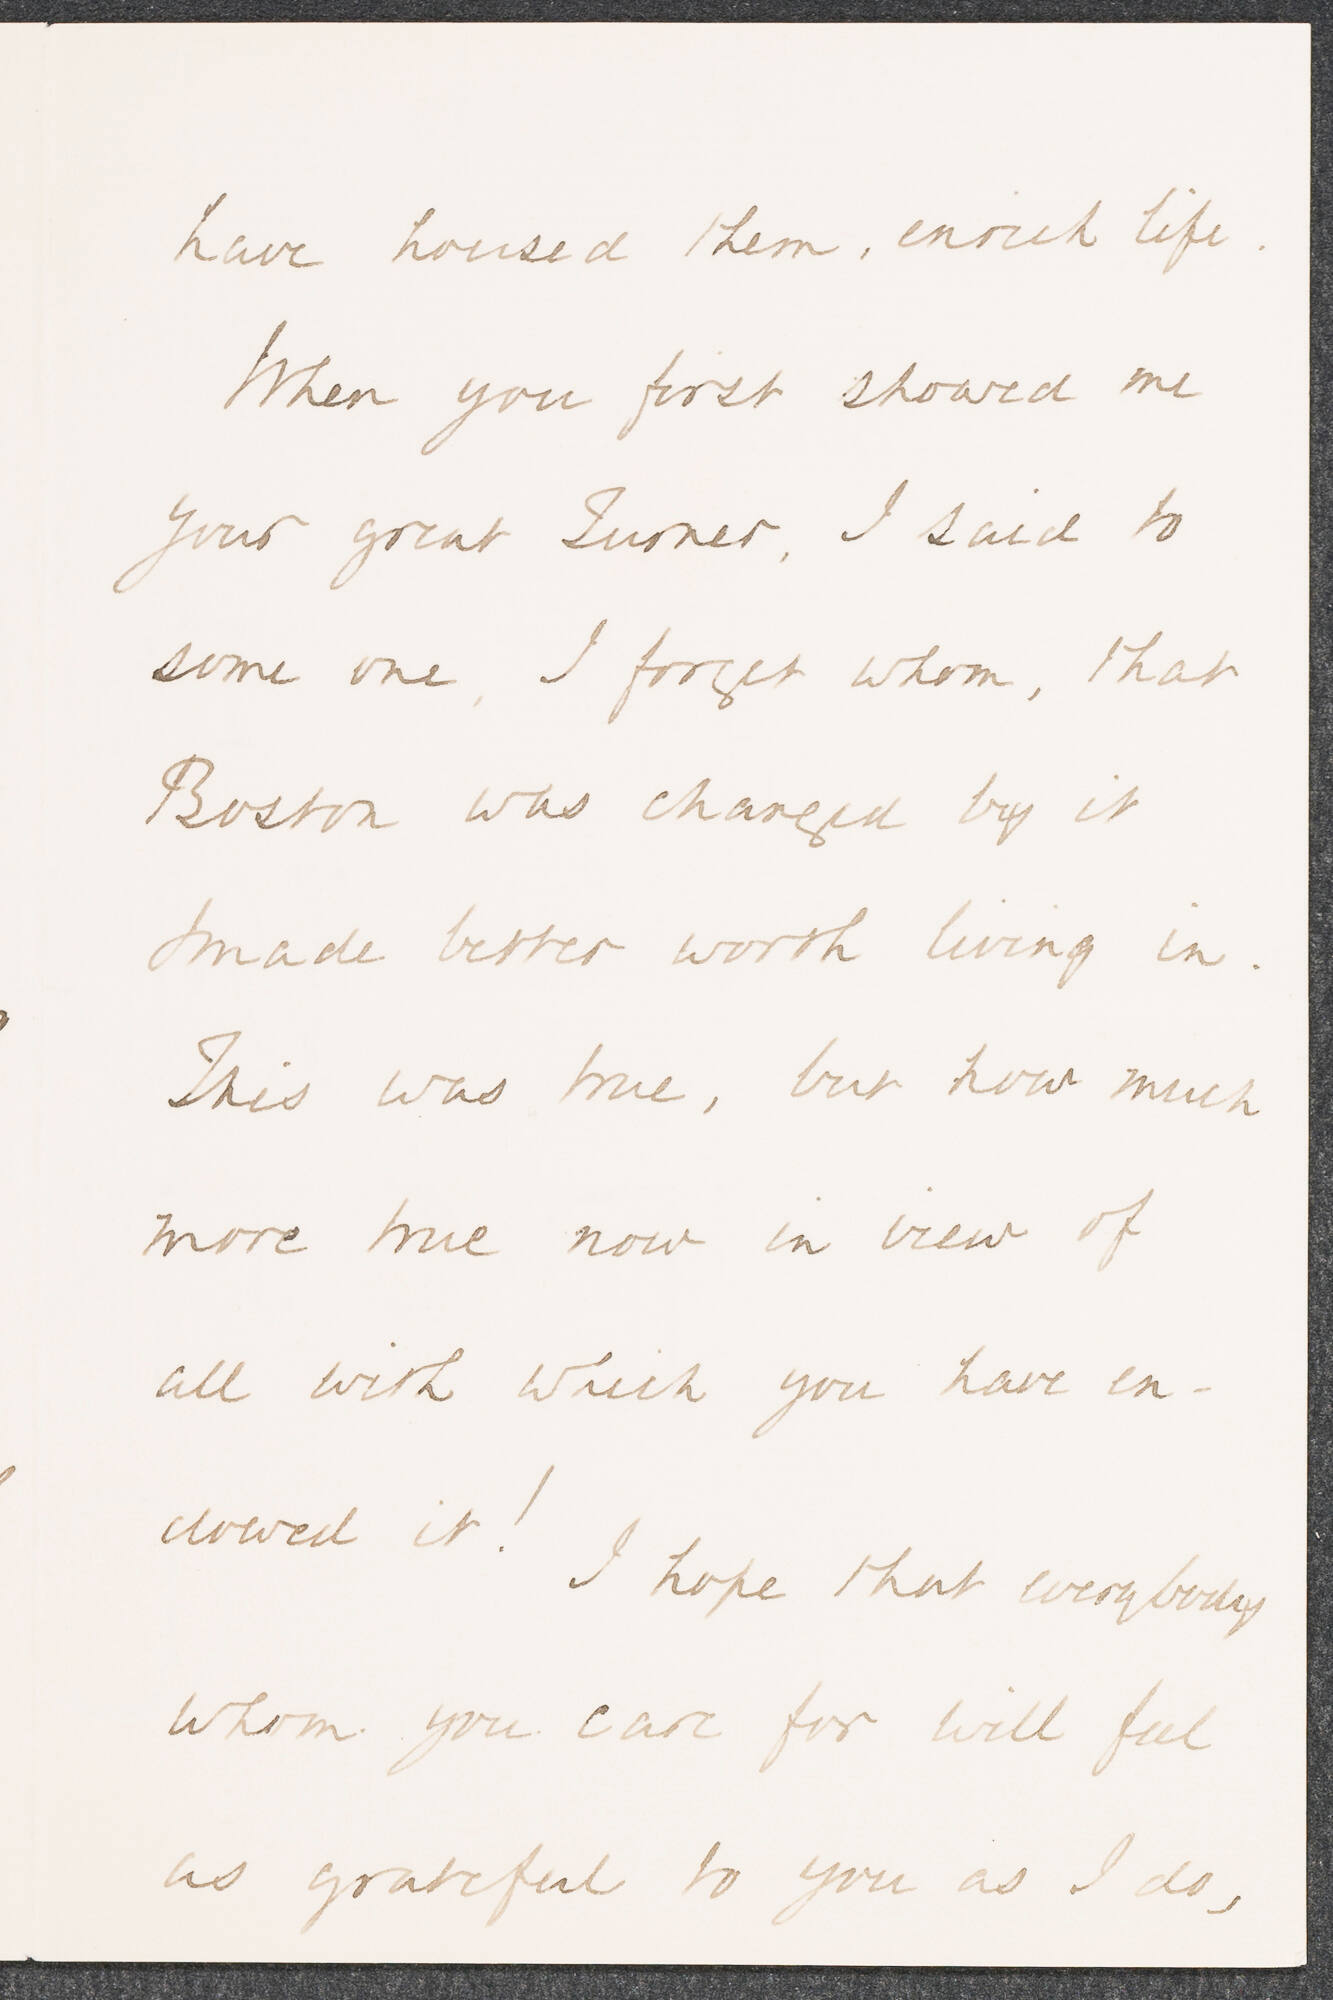 have housed them, enrich life.
When you first showed me
your great Turner, I said to
some one, I forget whom, that
Boston was changed by it
& made better worth living in.
This was true, but how much
more true now in view of
all with which you have en-
dowed it!
I hope that everybody
whom you care for will feel
as grateful to you as I do,